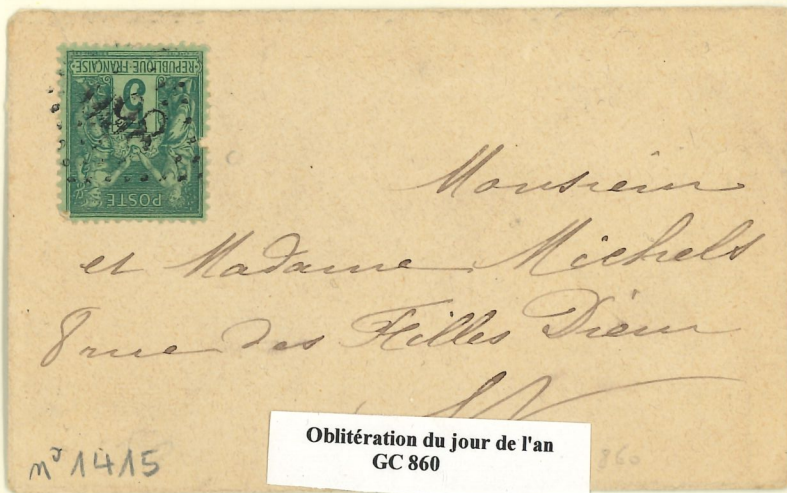 REPUBLIQUE FRANÇAISE
5
POSTE
Monsieur
et Madame Michels
8 rue des Filles Dieu
Oblitération du jour de l'an
GC 860
860
n° 1415